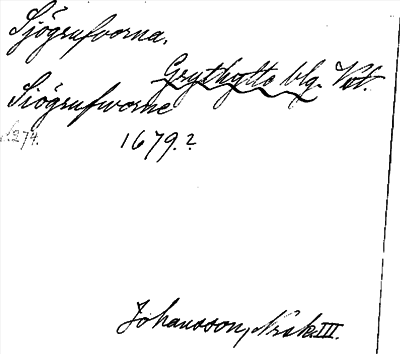 Sjögrufvorna.
Grythytte blg. Vstl.
Siögrufworne
s. 274.
1679.?
Johansson, Norsk. III.